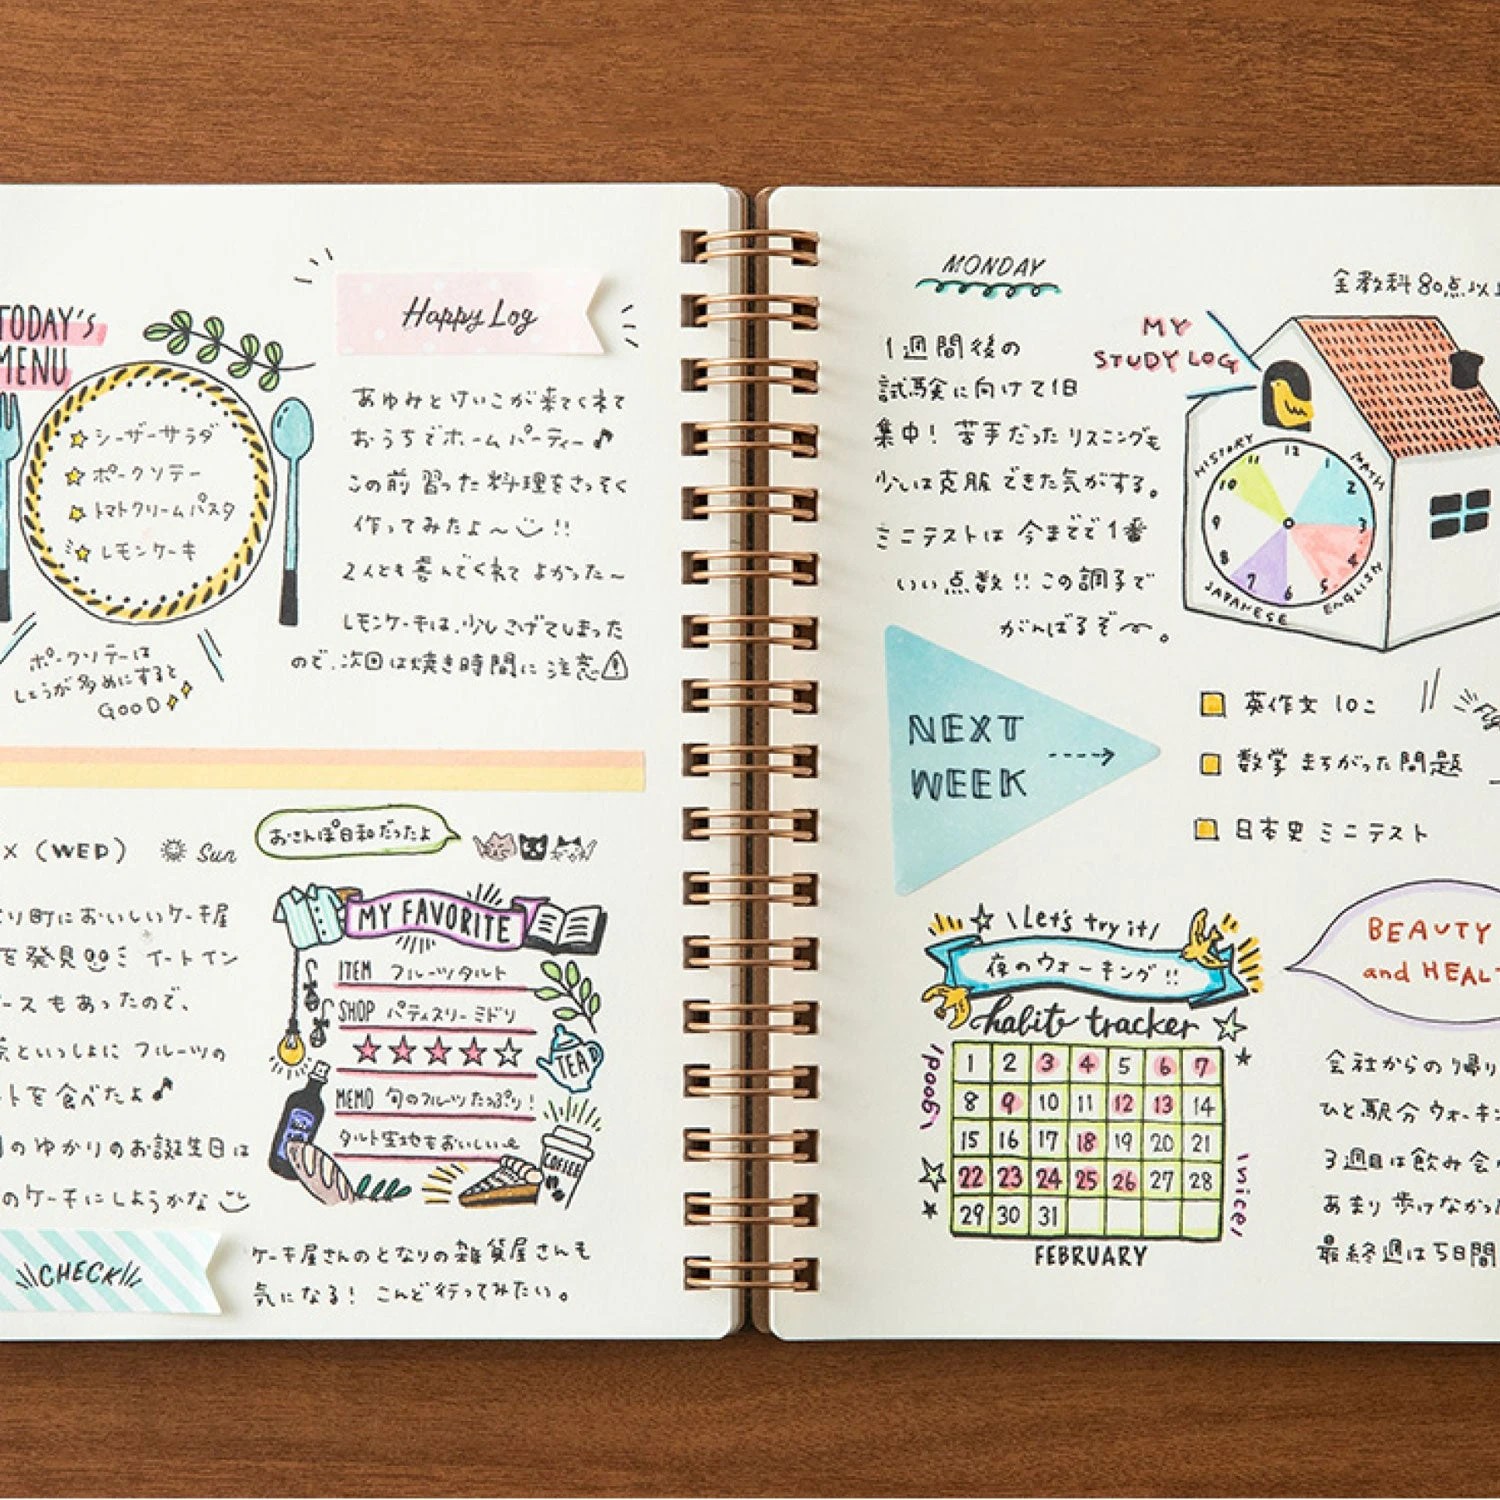 TODAY'S
MENU
シーザーサラダ
ポークソテー
トマトクリームパスタ
レモンケーキ
ポークソテーは
しょうが多めにすると
GOOD
Happy Log
あゆみとけいこが来てくれて
おうちでホームパーティー♪
この前習った料理をさっそく
作ってみたよ〜!!
2人とも喜んでくれてよかった〜
レモンケーキは、少しこげてしまった
ので、次回は焼き時間に注意
X (WED) Sun
おさんぽ日和だったよ
となり町においしいケーキ屋
を発見 イートイン
ースもあったので、
といっしょにフルーツの
トを食べたよ♪
のゆかりのお誕生日は
のケーキにしようかな
MY FAVORITE
ITEM フルーツタルト
SHOP パティスリーミドリ
★★★★☆
MEMO 旬のフルーツたっぷり!
タルト生地もおいしい
TEA
COFFEE
CHECK
ケーキ屋さんのとなりの雑貨屋さんも
気になる! こんど行ってみたい。
MONDAY
1週間後の
試験に向けて1日
集中! 苦手だったリスニングも
少しは克服できた気がする。
ミニテストは今までで1番
いい点数!! この調子で
がんばるぞ〜。
全教科80点以
MY
STUDY LOG
HISTORY
MATH
ENGLISH
JAPANESE
12
1
2
3
4
5
6
7
8
9
10
11
NEXT
WEEK
英作文10こ
数学まちがった問題
日本史ミニテスト
\Let's try it/
夜のウォーキング!!
habit tracker
/good\
1 2 3 4 5 6 7
8 9 10 11 12 13 14
15 16 17 18 19 20 21
22 23 24 25 26 27 28
29 30 31
\nice/
FEBRUARY
BEAUTY
and HEAL
会社からの帰り
ひと駅分ウォーキ
3週目は飲み会
あまり歩けなかっ
最終週は5日間